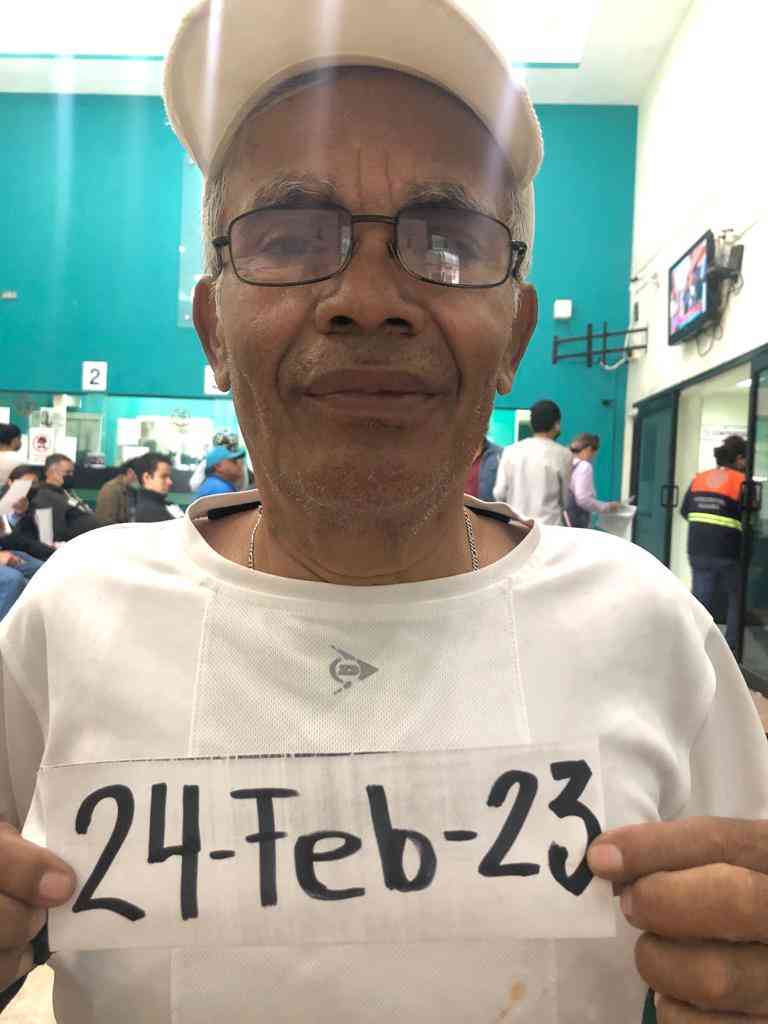 2
24-Feb-23